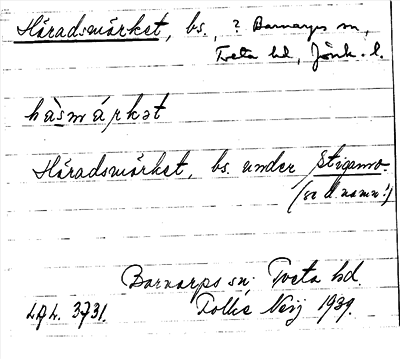 Häradsmärket, bs., ? Barnarps sn,
Tveta hd, Jönk. l.
hàsmárkət
Häradsmärket, bs. under Stigamo.
(se d. namn!)
Barnarps sn. Tveta hd.
LAL. 3731. Tollie Neij 1939.